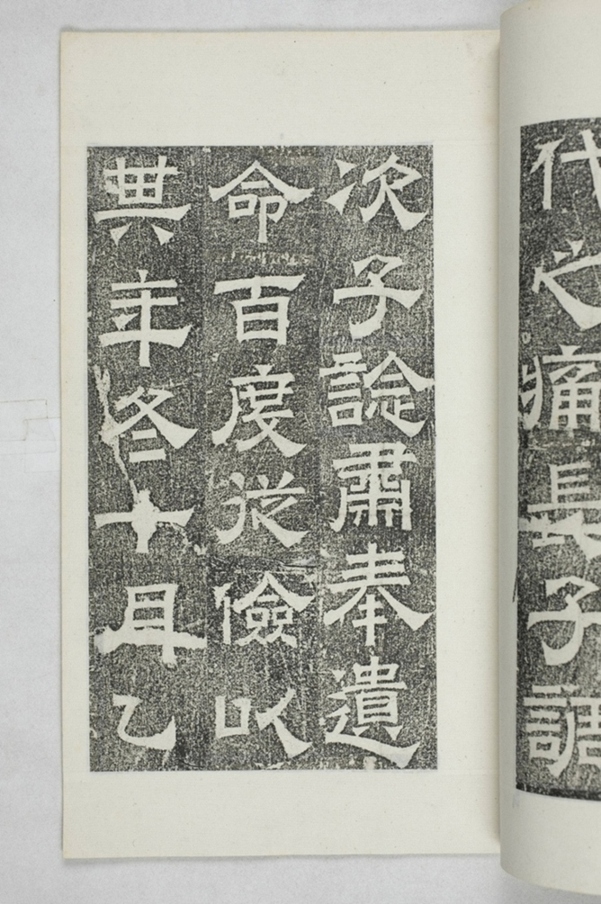 代之痛長子
次子諗肅奉遺
命百度従儉以
其年冬十月乙